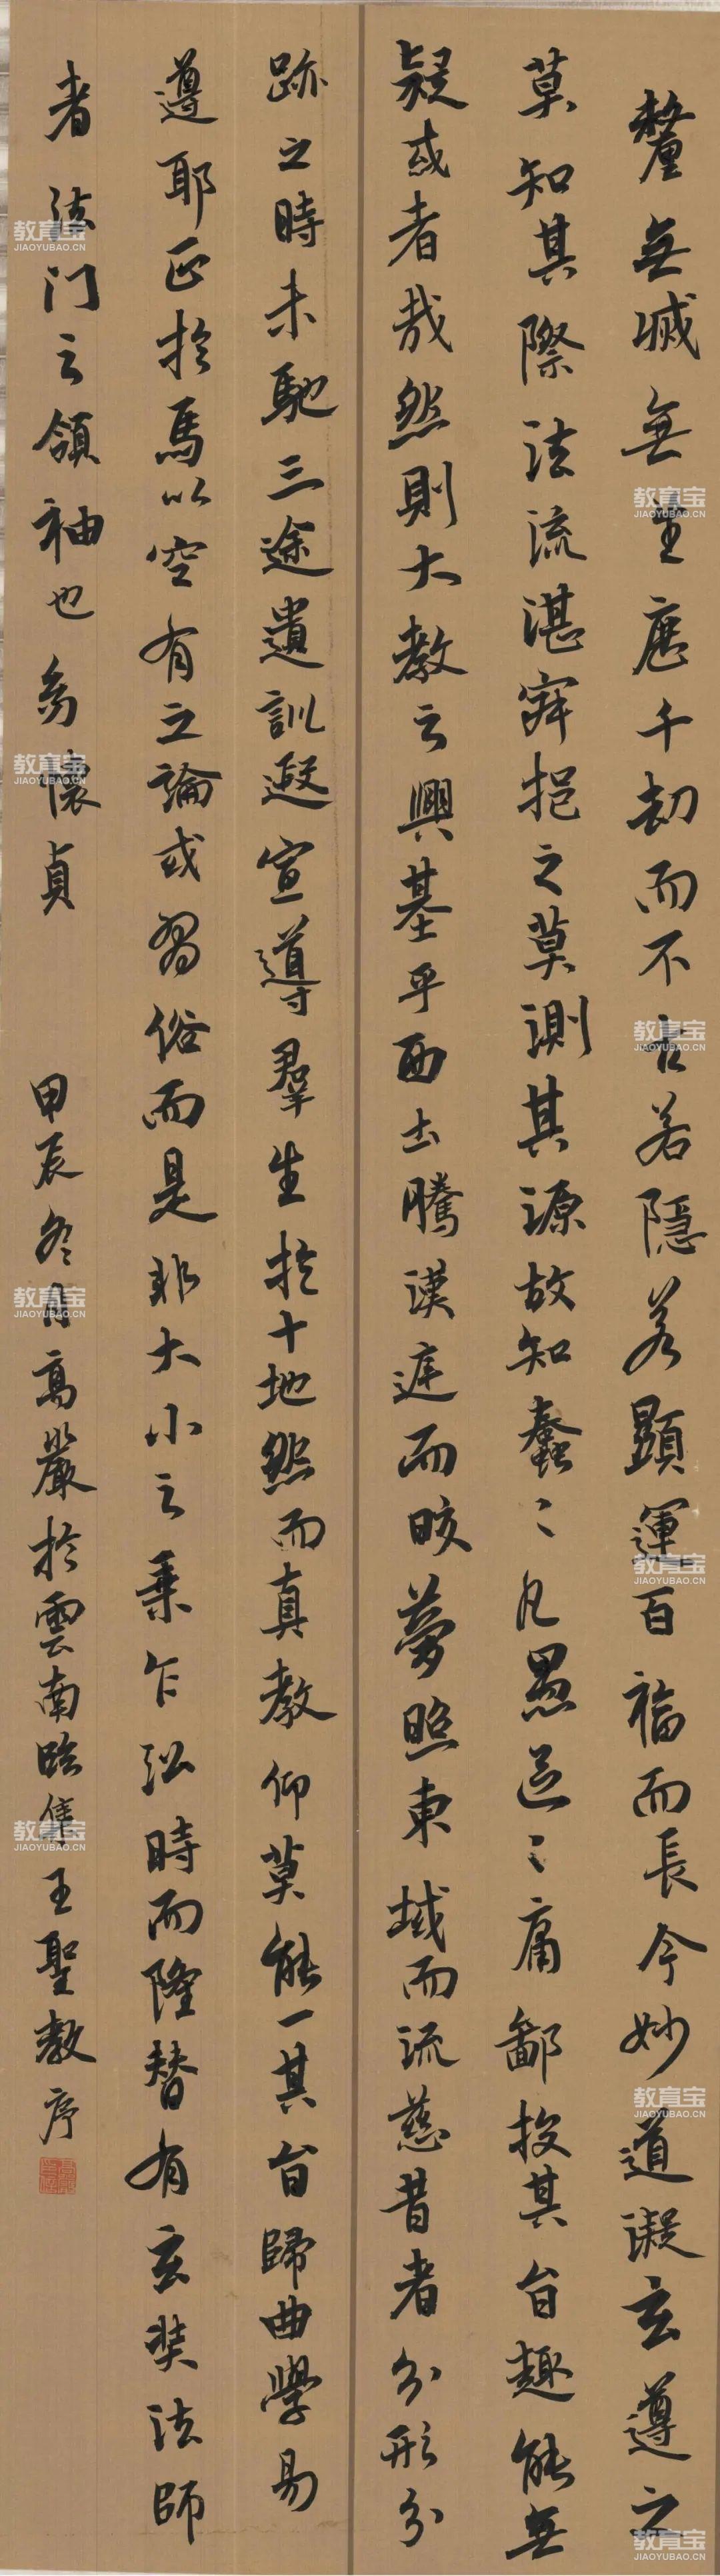 釐無滅無生歷千劫而不古若隱若顯運百福而長今妙道凝玄遵之
莫知其際法流湛寂挹之莫測其源故知蠢〻凡愚區〻庸鄙投其旨趣能無
疑或者哉然則大教之興基乎西土騰漢庭而皎夢照東域而流慈昔者分形分
跡之時未馳三途遺訓遐宣導羣生於十地然而真教仰莫能一其旨歸曲學易
遵耶正於焉以空有之論或習俗而是非大小之乘乍沿時而隆替有玄奘法師
者法门之領袖也幼懷貞
甲辰冬月高嚴於雲南臨集王聖教序
教育宝
JIAOYUBAO.CN